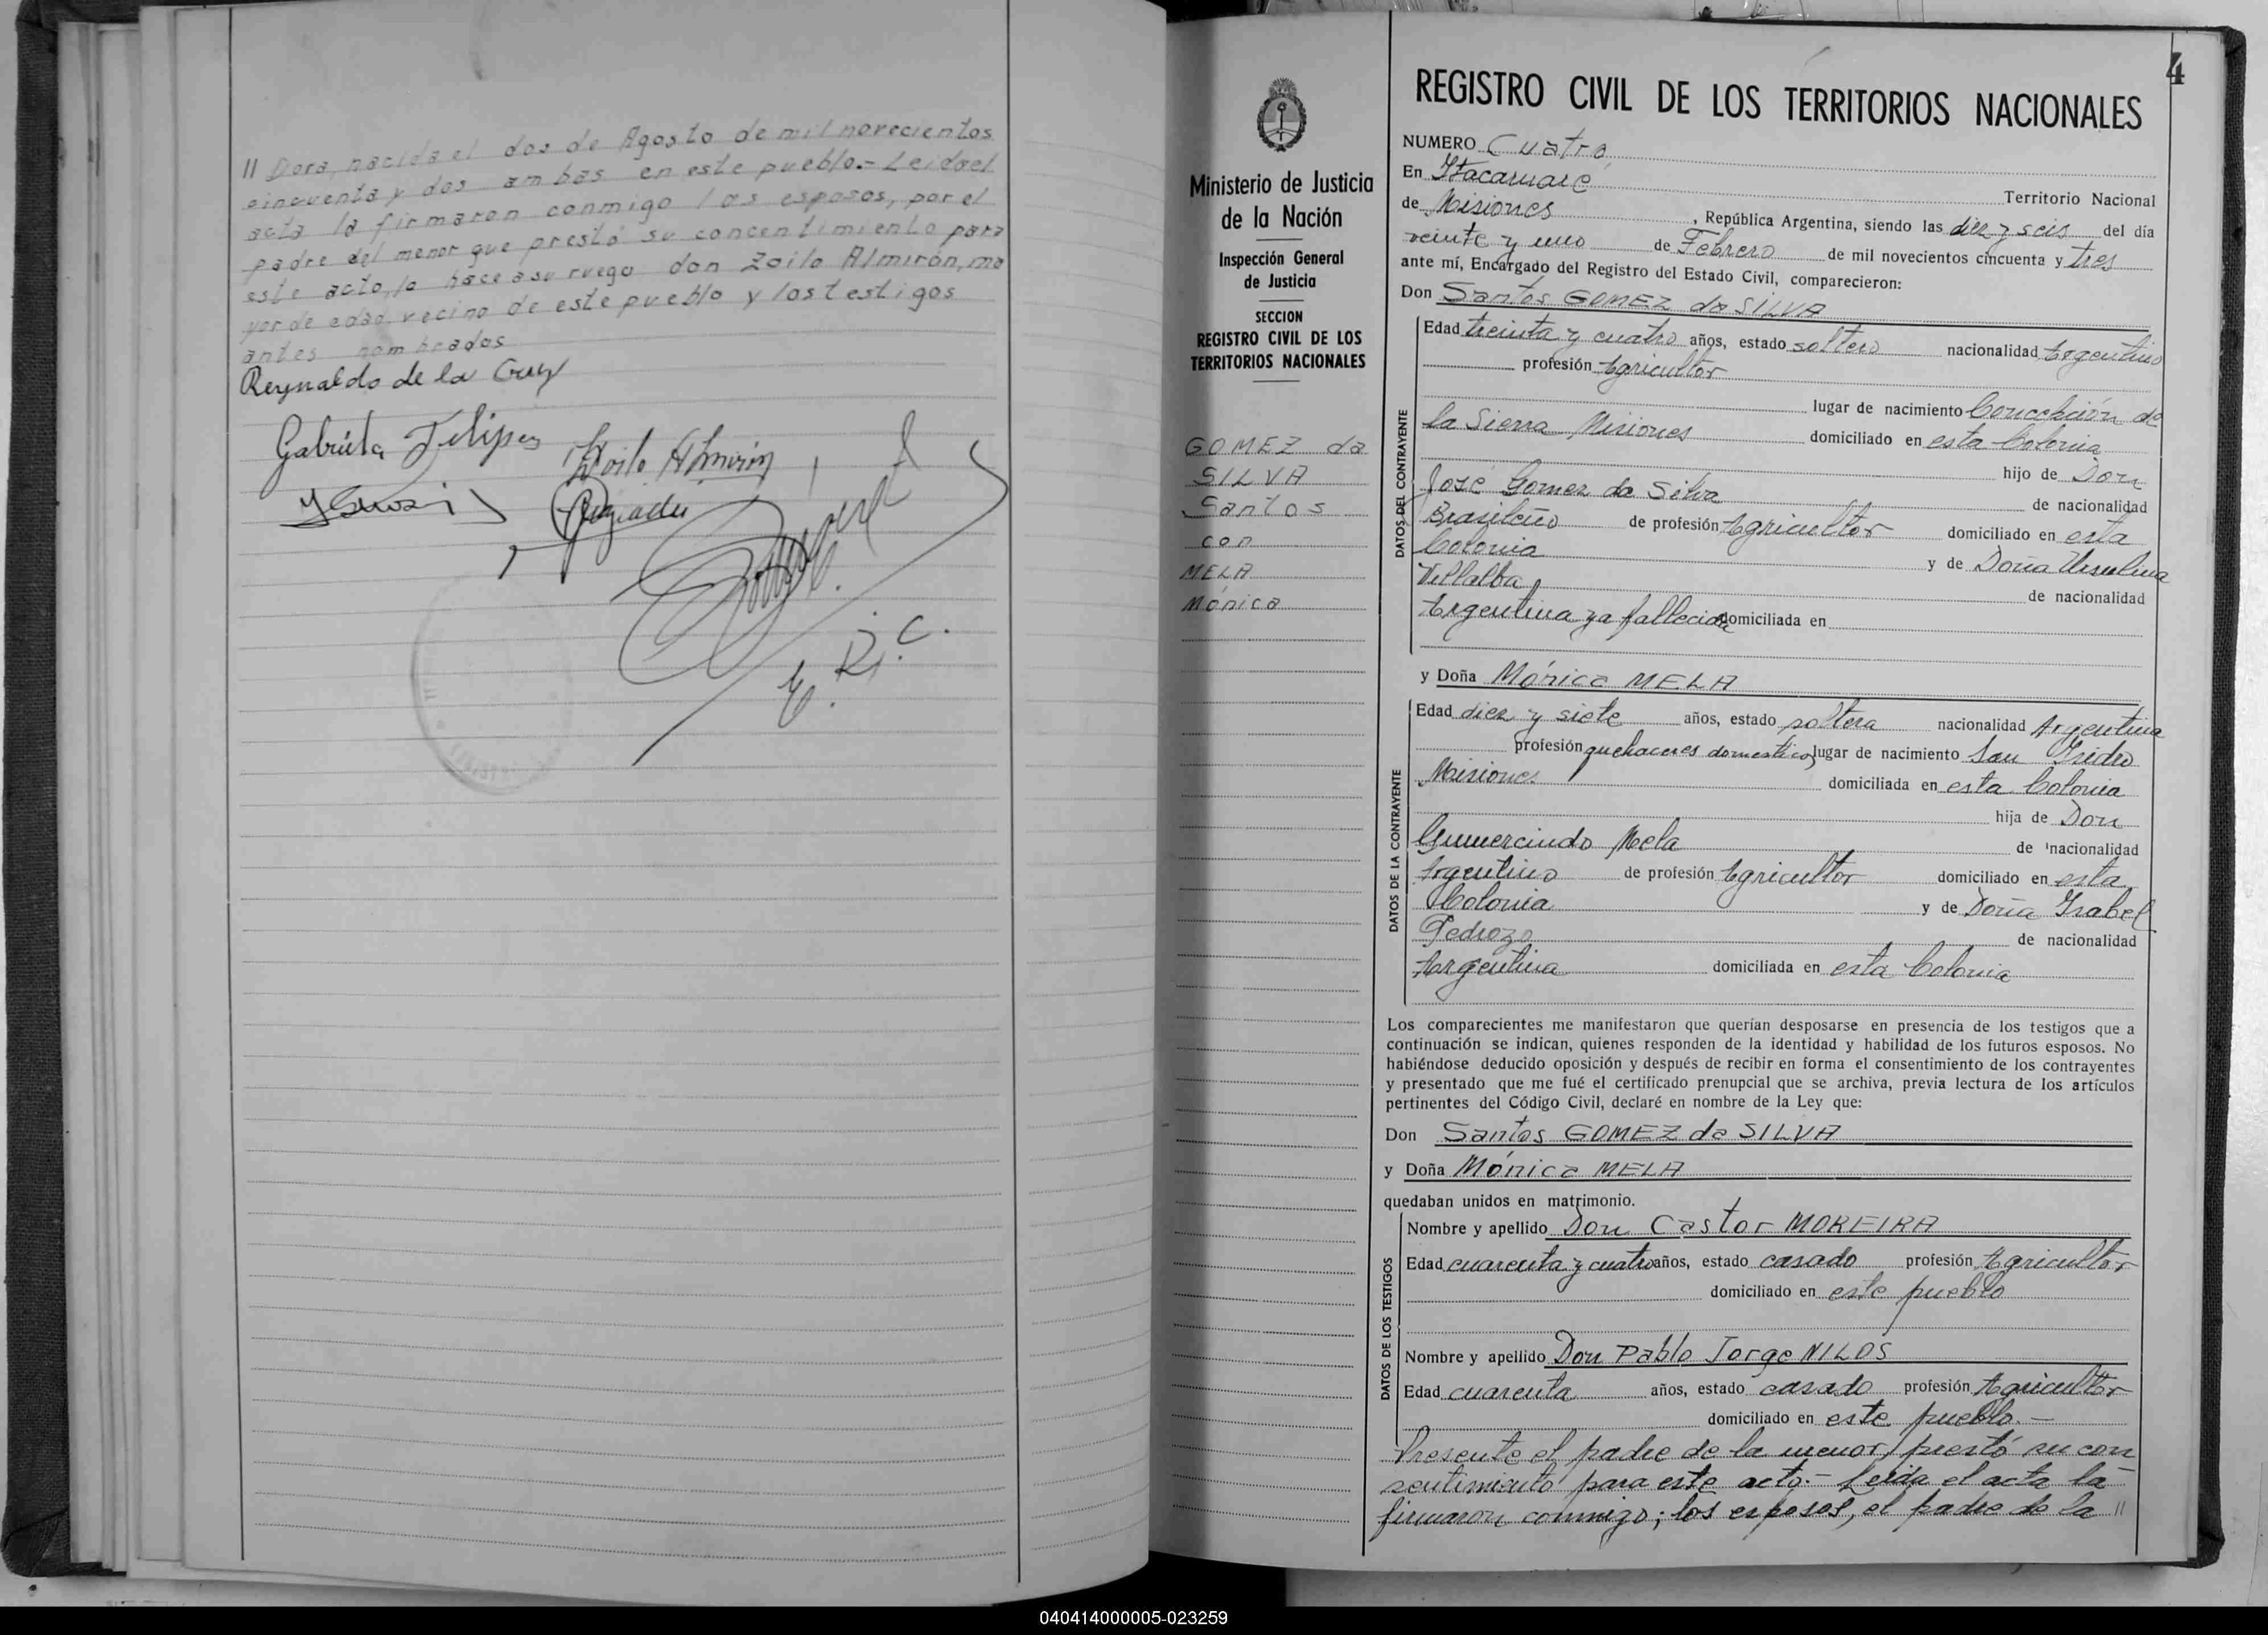 " Dora, nacida el dos de Agosto de mil novecientos
cincuenta y dos ambas en este pueblo.- Leida el
acta la firmaron conmigo los esposos, por el
padre del menor que prestó su concentimiento para
este acto, lo hace a su ruego don Zoilo Almirón, ma
yor de edad, vecino de este pueblo y los testigos
antes nombrados
Reynaldo de la Cruz
Gabriela Filipes
Zoilo Almirón
E. R. C.
4
REGISTRO CIVIL DE LOS TERRITORIOS NACIONALES
Ministerio de Justicia
de la Nación
Inspección General
de Justicia
SECCION
REGISTRO CIVIL DE LOS
TERRITORIOS NACIONALES
GOMEZ da
SILVA
Santos
con
MELA
Mónica
NUMERO Cuatro
En Itacaruaré Territorio Nacional
de Misiones, República Argentina, siendo las diez y seis del día
veinte y uno de Febrero de mil novecientos cincuenta y tres
ante mí, Encargado del Registro del Estado Civil, comparecieron:
Don Santos GOMEZ da SILVA
DATOS DEL CONTRAYENTE
Edad treinta y cuatro años, estado soltero nacionalidad Argentino
profesión Agricultor
lugar de nacimiento Concepción de
la Sierra Misiones domiciliado en esta Colonia
hijo de Don
José Gomez da Silva de nacionalidad
Brasileño de profesión Agricultor domiciliado en esta
Colonia y de Doña Ursulina
Villalba de nacionalidad
Argentina ya fallecida domiciliada en
y Doña Mónica MELA
DATOS DE LA CONTRAYENTE
Edad diez y siete años, estado soltera nacionalidad Argentina
profesión quehaceres domesticos lugar de nacimiento San Isidro
Misiones domiciliada en esta Colonia
hija de Don
Gumercindo Mela de nacionalidad
Argentino de profesión Agricultor domiciliado en esta
Colonia y de Doña Isabel
Pedrozo de nacionalidad
Argentina domiciliada en esta Colonia
Los comparecientes me manifestaron que querían desposarse en presencia de los testigos que a
continuación se indican, quienes responden de la identidad y habilidad de los futuros esposos. No
habiéndose deducido oposición y después de recibir en forma el consentimiento de los contrayentes
y presentado que me fué el certificado prenupcial que se archiva, previa lectura de los artículos
pertinentes del Código Civil, declaré en nombre de la Ley que:
Don Santos GOMEZ da SILVA
y Doña Mónica MELA
quedaban unidos en matrimonio.
DATOS DE LOS TESTIGOS
Nombre y apellido Don Castor MOREIRA
Edad cuarenta y cuatro años, estado casado profesión Agricultor
domiciliado en este pueblo
Nombre y apellido Don Pablo Jorge NILOS
Edad cuarenta años, estado casado profesión Agricultor
domiciliado en este pueblo.-
Presente el padre de la menor, prestó su con
sentimiento para este acto.- Leida el acta la
firmaron conmigo; los esposos, el padre de la "
040414000005-023259